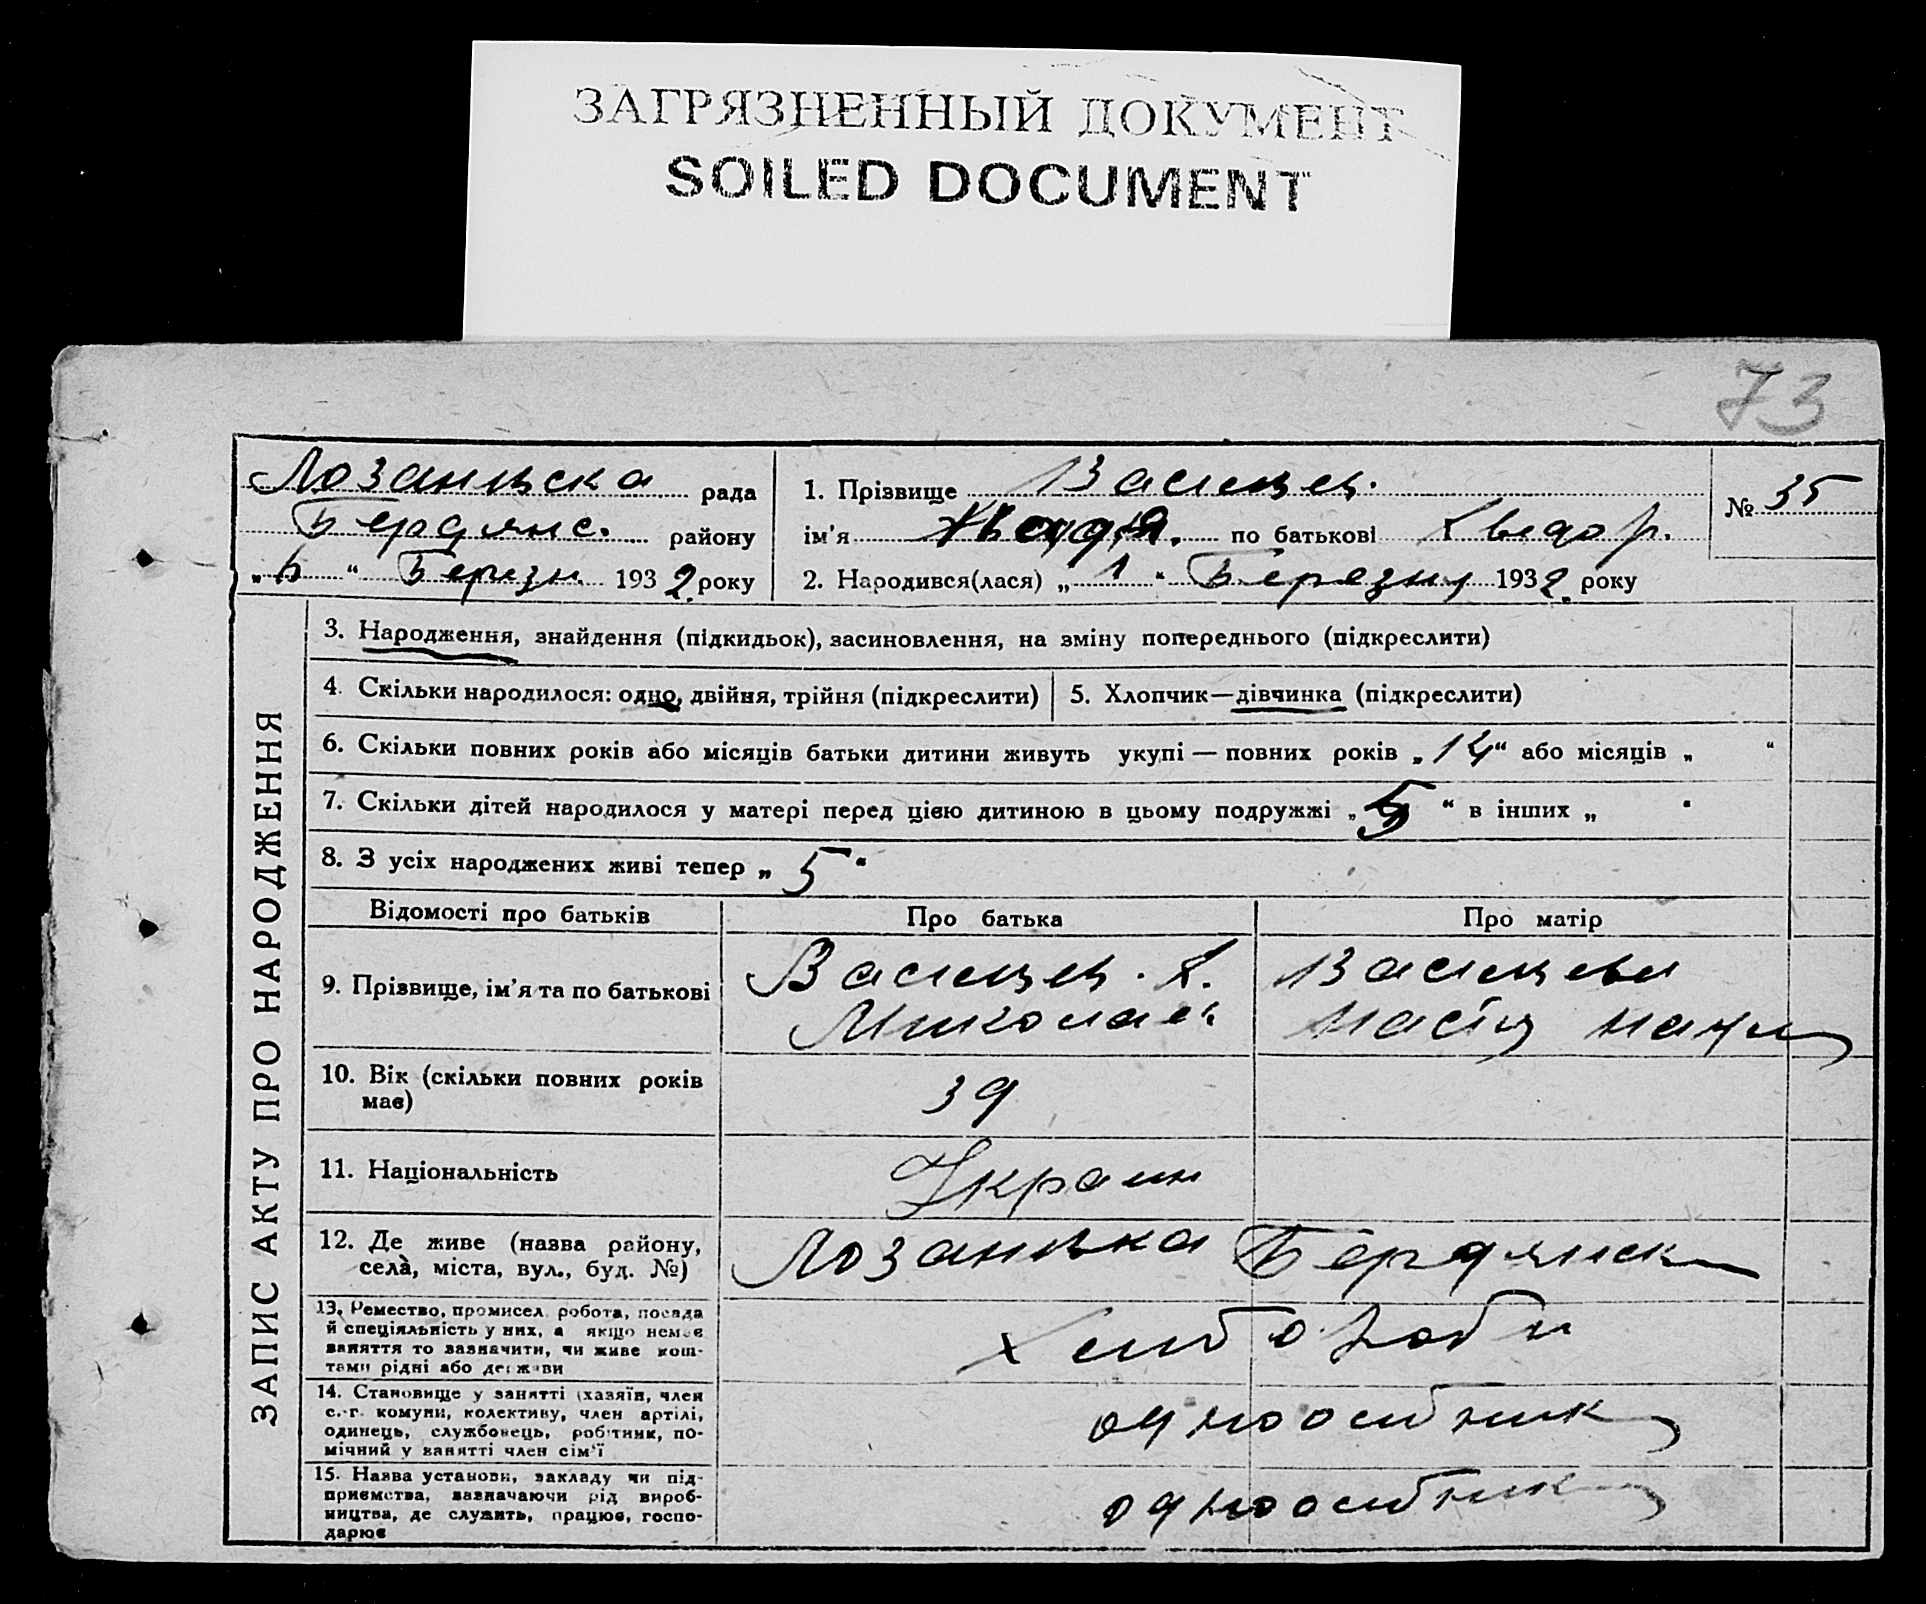 ЗАГРЯЗНЕННЫЙ ДОКУМЕНТ
SOILED DOCUMENT
73
Лозанивска рада
Бердянс. району
„ 6 “ Березн 1932 року
1. Прізвище
ім’я по батькові Хведор.
2. Народився(лася) „ 1 “ Березня 1932 року
№ 35
ЗАПИС АКТУ ПРО НАРОДЖЕННЯ
3. Народження, знайдення (підкидьок), засиновлення, на зміну попереднього (підкреслити)
4. Скільки народилося: одно, двійня, трійня (підкреслити)
5. Хлопчик—дівчинка (підкреслити)
6. Скільки повних років або місяців батьки дитини живуть укупі — повних років „14“ або місяців „ “
7. Скільки дітей народилося у матері перед цією дитиною в цьому подружжі „5“ в інших „ “
8. З усіх народжених живі тепер „ 5 “
Відомості про батьків
Про батька
Про матір
9. Прізвище, ім’я та по батькові
Х.
Микола
10. Вік (скільки повних років має)
39
11. Національність
Украин
12. Де живе (назва району,
села, міста, вул., буд. №)
Бердянск
13. Ремество, промисел, робота, посада
й спеціяльність у них, а якщо немає
заняття то зазначити, чи живе кош-
тами рідні або держави
Хлиборобы
14. Становище у занятті (хазяїн, член
с.-г. комуни, колективу, член артілі,
одинець, службовець, робітник, по-
мічний у занятті член сім’ї
одноосибник
15. Назва установи, закладу чи під-
приємства, зазначаючи рід вироб-
ництва, де служить, працює, госпо-
дарює
одноосибник